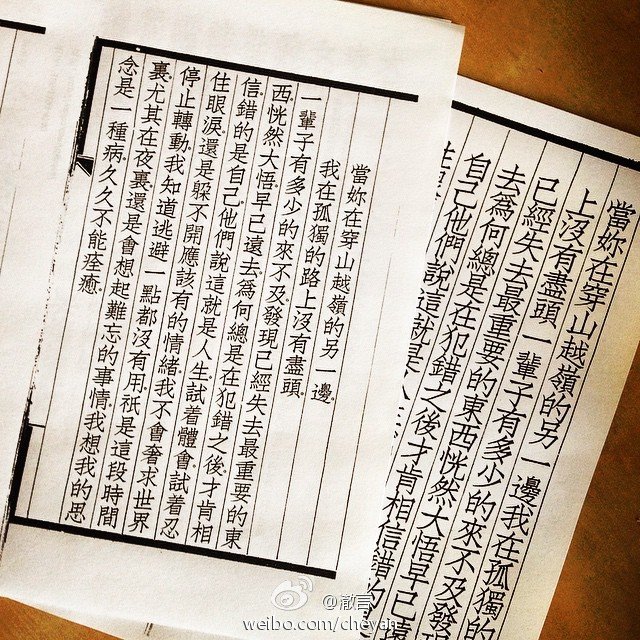 當妳在穿山越嶺的另一邊。
我在孤獨的路上沒有盡頭。
一輩子有多少的來不及發現已經失去最重要的東
西。恍然大悟早已遠去。為何總是在犯錯之後才肯相
信錯的是自己。他們說這就是人生。試着體會。試着忍
住眼淚。還是躲不開應該有的情緒。我不會奢求世界
停止轉動。我知道逃避一點都沒有用。祇是這段時間
裏。尤其在夜裏。還是會想起難忘的事情。我想我的思
念是一種病。久久不能痊癒。
當妳在穿山越嶺的另一邊我在孤獨的
上沒有盡頭一輩子有多少的來不及發
已經失去最重要的東西恍然大悟早已
去為何總是在犯錯之後才肯相信錯的
自己他們說這就是人
@澈言
weibo.com/cheyan